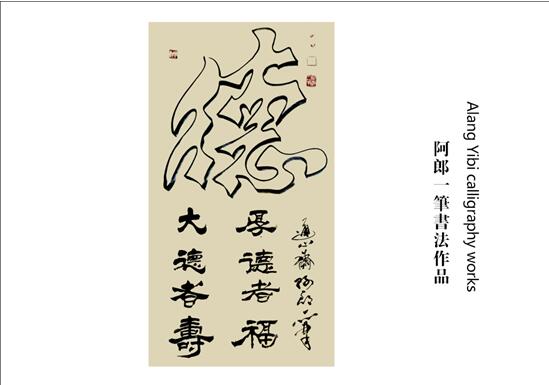 德
厚德者福
大德者壽
Alang Yibi calligraphy works
阿郎一筆書法作品